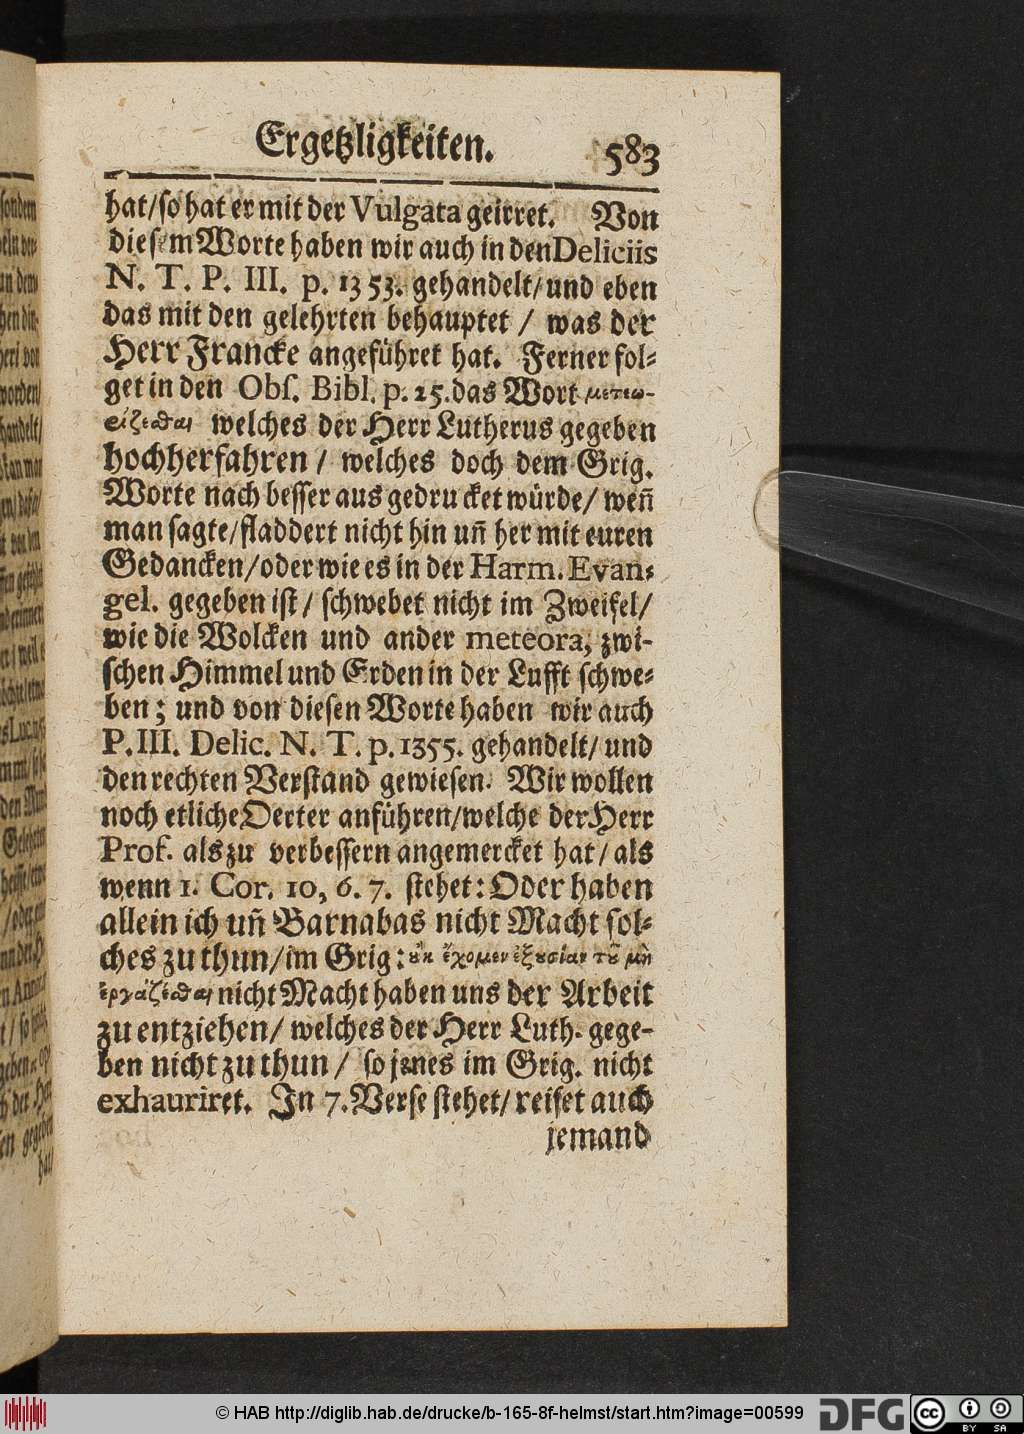 Ergetzligkeiten. 583
hat/so hat er mit der Vulgata geirret. Von
diesem Worte haben wir auch in den Deliciis
N. T. P. III. p. 1353. gehandelt/und eben
das mit den gelehrten behauptet / was der
Herr Francke angeführet hat. Ferner fol-
get in den Obs. Bibl. p. 25. das Wort μετεω-
ρίζεσθαι welches der Herr Lutherus gegeben
hochherfahren / welches doch dem Grig.
Worte nach besser ausgedrucket würde/ weñ
man sagte/fladdert nicht hin uñ her mit euren
Gedancken/oder wie es in der Harm. Evan-
gel. gegeben ist/ schwebet nicht im Zweifel/
wie die Wolcken und ander meteora, zwi-
schen Himmel und Erden in der Lufft schwe-
ben; und von diesen Worte haben wir auch
P. III. Delic. N. T. p. 1355. gehandelt/ und
den rechten Verstand gewiesen. Wir wollen
noch etliche Oerter anführen/welche der Herr
Prof. als zu verbessern angemercket hat/ als
wenn 1. Cor. 10, 6. 7. stehet: Oder haben
allein ich uñ Barnabas nicht Macht sol-
ches zu thun/im Grig: οὐκ ἔχομεν ἐξουσίαν τοῦ μὴ
ἐργάζεσθαι nicht Macht haben uns der Arbeit
zu entziehen/ welches der Herr Luth. gege-
ben nicht zu thun / so jenes im Grig. nicht
exhauriret. In 7. Verse stehet/ reiset auch
jemand
© HAB http://diglib.hab.de/drucke/b-165-8f-helmst/start.htm?image=00599 DFG cc BY SA